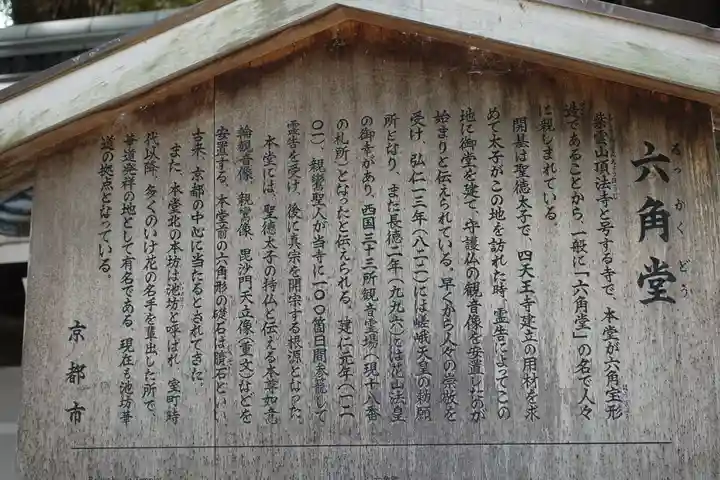 六角堂
ろっかくどう
紫雲山頂法寺と号する寺で、本堂が六角宝形
造であることから、一般に「六角堂」の名で人々
に親しまれている。
開基は聖徳太子で、四天王寺建立の用材を求
めて太子がこの地を訪れた時、霊告によってこの
地に御堂を建て、守護仏の観音像を安置したのが
始まりと伝えられている。早くから人々の崇敬を
受け、弘仁一三年(八二二)には嵯峨天皇の勅願
所となり、また長徳二年(九九六)には花山法皇
の御幸があり、西国三十三所観音霊場(現十八番
の札所)となったと伝えられる。建仁元年(一二
〇一)、親鸞聖人が当寺に一〇〇箇日間参籠して
霊告を受け、後に真宗を開宗する根源となった。
本堂には、聖徳太子の持仏と伝える本尊如意
輪観音像、親鸞像、毘沙門天立像(重文)などを
安置する。本堂前の六角形の礎石は臍石といい、
古来、京都の中心に当たるとされてきた。
また、本堂北の本坊は池坊と呼ばれ、室町時
代以降、多くのいけ花の名手を輩出した所で、
華道発祥の地として有名である。現在も池坊華
道の拠点となっている。
京都市